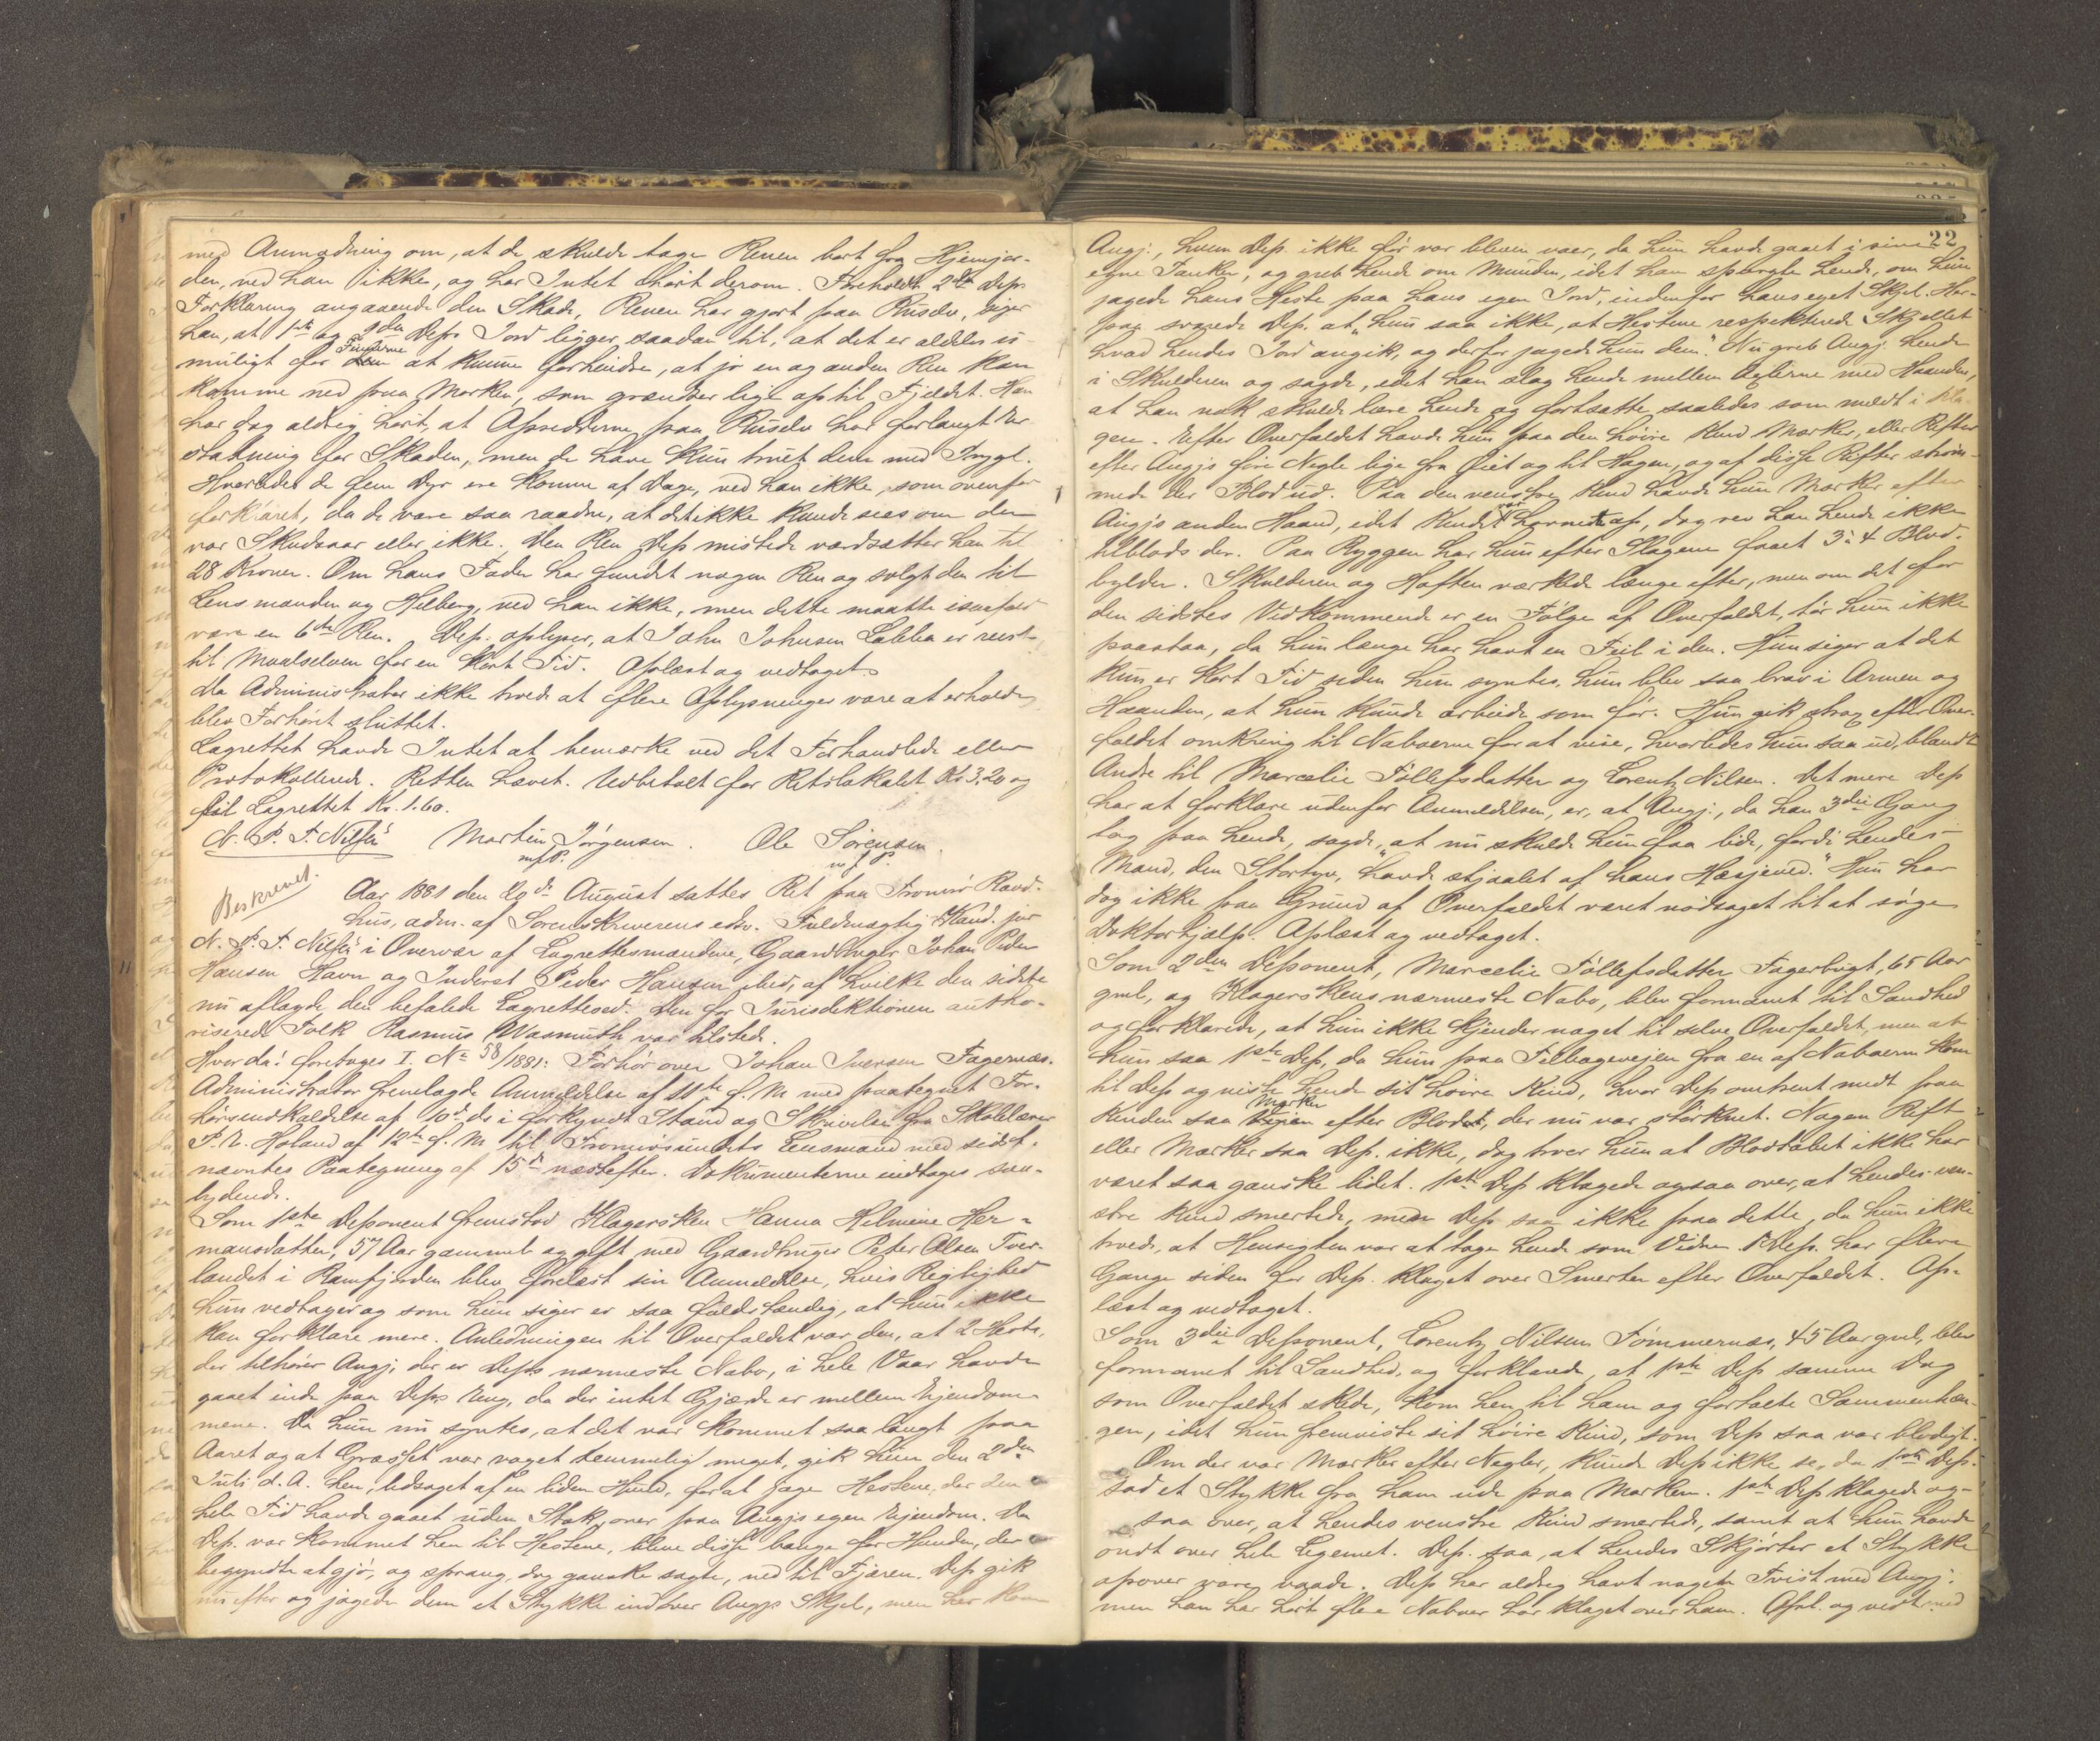 med Anmodning om, at de skulde tage Renen bort fra Hjemjor-
den, ved han ikke, og har Intet hørt derom. Foreholdt 2den Deps
Forklaring angaaende den Skade, Renen har gjort paa Ruselv, siger
han, at 1ste og 2den Deps Jord ligger saadan til, at det er aldeles u-
muligt for Finnerne at kunne forhindre, at jo en og anden Ren kan
komme ned paa Marken, som grændser lige op til Fjeldet. Han
har dog aldrig hørt, at Opsidderne paa Ruselv har forlangt Er-
statning for Skaden, men de have kun truet dem med Trygl.
Hvorledes de fem Dyr ere komne af Dage, ved han ikke, som ovenfor
forklaret, da de vare saa raadne, at det ikke kunde sees om der
var Skudsaar eller ikke. Den Ren Dep mistede værdsætter han til
28 Kroner. Om hans Fader har fundet nogen Ren og solgt den til
Lensmanden og Hilberg, ved han ikke, men dette maatte isaafald
være en 6te Ren. Dep. oplyser, at John Johnsen Labba er reist
til Maalselven for en kort Tid. Oplæst og vedtaget.
Da Administrator ikke troede at flere Oplysninger vare at erholde,
blev Forhøret sluttet.
Lagrettet havde Intet at bemærke ved det Forhandlede eller
Protokollerede. Retten hævet. Udbetalt for Retslokalet Kr 3,20 og
til Lagrettet Kr. 1.60.
N. P. F. Nilsen Martin Jørgensen. Ole Sørensen.
m f P. m f P.
Beskrevet.
Aar 1881 den 20de August sattes Ret paa Tromsø Raad-
hus, adm. af Sorenskriverens edsv. Fuldmægtig Kand. jur
N. P. F. Nilsen i Overvær af Lagrettesmændene, Gaardbruger Johan Peder
Hansen Havn og Inderst Peder Hansen ibid, af hvilke den sidste
nu aflagde den befalede Lagrettesed. Den for Jurisdiktionen autho-
riserede Tolk Rasmus Wasmuth var tilstede.
Hvor da: foretoges I. No 58/1881: Forhør over Johan Iversen Fagernæs.
Administrator fremlagde Anmeldelse af 11te f. M med paategnet For-
hørsindkaldelse af 10de ds i forkyndt Stand og Skrivelse fra Skolelærer
P. A. Høland af 12te f. M til Tromsøsundets Lensmand med sidst-
nævntes Paategning af 15de næstefter. Dokumenterne indtages saa-
lydende.
Som 1ste Deponent fremstod Klagersken Hanna Helmine Her-
mansdatter, 57 Aar gammel og gift med Gaardbruger Peter Olsen Tver-
landet i Ramfjorden blev forelæst sin Anmeldelse, hvis Rigtighed
hun vedtager og som hun siger er saa fuldstændig, at hun ikke
kan forklare mere. Anledningen til Overfaldet var den, at 2 Heste,
der tilhører Angj. der er Deps nærmeste Nabo, i hele Vaar havde
gaaet inde paa Deps Eng, da der intet Gjærde er mellem Eiendom-
mene. Da hun nu syntes, at det var kommet saa langt paa
Aaret og at Græsset var voxet temmelig meget, gik hun den 2den
Juli d. A. hen, ledsaget af en liden Hund, for at jage Hestene, der den
hele Tid havde gaaet uden Stok, over paa Angjs egen Eiendom. Da
Dep. var kommet hen til Hestene, bleve disse bange for Hunden, der
begyndte at gjø, og sprang, dog ganske sagte, ned til Fjæren. Dep gik
nu efter og jagede dem et Stykke indover Angjs Skjel, men her kom
22
Angj., hvem Dep. ikke før var bleven vaer, da hun havde gaaet i sine
egne Tanker, og greb hende om Munden, idet han spurgte hende, om hun
jagede hans Heste paa hans egen Jord, indenfor hans eget Skjel. Her-
paa svarede Dep. at "hun saa ikke, at Hestene respekterede Skjellet
hvad hendes Jord angik, og derfor jagede hun dem". Nu greb Angj. hende
i Skulderen og sagde, idet han slog hende mellem Axlerne med Haanden,
at han nok skulde lære hende og fortsatte saaledes som meldt i Kla-
gen. Efter Overfaldet havde hun paa den høire Kind Mærker, eller Rifter
efter Angjs fire Negle lige fra Øiet og til Hagen, og af disse Rifter strøm-
mede der Blod ud. Paa den venstre Kind havde hun Mærker efter
Angjs anden Haand, idet Kindet var hovnet op, dog rev han hende ikke
tilblods der. Paa Ryggen har hun efter Slagene faaet 3 à 4 Blod-
bylder. Skulderen og Hoften værkede længe efter, men om det for
den sidstes Vedkommende er en Følge af Overfaldet, tør hun ikke
paastaa, da hun længe har havt en Feil i den. Hun siger at det
kun er kort Tid siden hun syntes, hun blev saa brav i Armen og
Haanden, at hun kunde arbeide som før. Hun gik strax efter Over-
faldet omkring til Naboerne for at vise, hvorledes hun saa ud, blandt
Andre til Marcelie Tollefsdatter og Lorentz Nilsen. Det mere Dep
har at forklare udenfor Anmeldelsen, er, at Angj., da han 3die Gang
tog paa hende, sagde, "at nu skulde hun faa lide, fordi hendes
Mand, den Stortyv, havde stjaalet af hans Hæsjeved." Hun har
dog ikke paa Grund af Overfaldet været nødsaget til at søge
Doktorhjælp. Oplæst og vedtaget.
Som 2den Deponent, Marcelie Tollefsdatter Fagerbugt, 65 Aar
gml, og Klagerskens nærmeste Nabo, blev formanet til Sandhed
og forklarede, at hun ikke kjender noget til selve Overfaldet, men at
hun saa 1ste Dep, da hun paa Tilbageveien fra en af Naboerne kom
til Dep og viste hende sit høire Kind, hvor Dep omtrent midt paa
Kinden saa Mærker efter Blodet, der nu var størknet. Nogen Rift
eller Mærker saa Dep. ikke, dog tror hun at Blodtabet ikke har
været saa ganske lidet. 1ste Dep klagede ogsaa over, at hendes ven-
stre Kind smertede, men Dep saa ikke paa dette, da hun ikke
troede, at Hensigten var at tage hende som Vidne. 1 Dep. har flere
Gange siden for Dep. klaget over Smerter efter Overfaldet. Op-
læst og vedtaget.
Som 3die Deponent, Lorentz Nilsen Tømmernæs, 45 Aar gml, blev
formanet til Sandhed, og forklarede, at 1ste Dep samme Dag
som Overfaldet skede, kom hen til ham og fortalte Sammenhæn-
gen, idet hun fremviste sit høire Kind, som Dep saa var blodigt.
Om der var Mærker efter Negler, kunde Dep ikke se, da 1ste Dep.
sad et Stykke fra ham ude paa Marken. 1ste Dep klagede og-
saa over, at hendes venstre Kind smertede, samt at hun havde
ondt over hele Legemet. Dep. saa, at hendes Skjørter et Stykke
opover vare vaade. Dep har aldrig havt nogen Tvist med Angj.
men han har hørt flere Naboer har klaget over ham. Opl. og vedt.